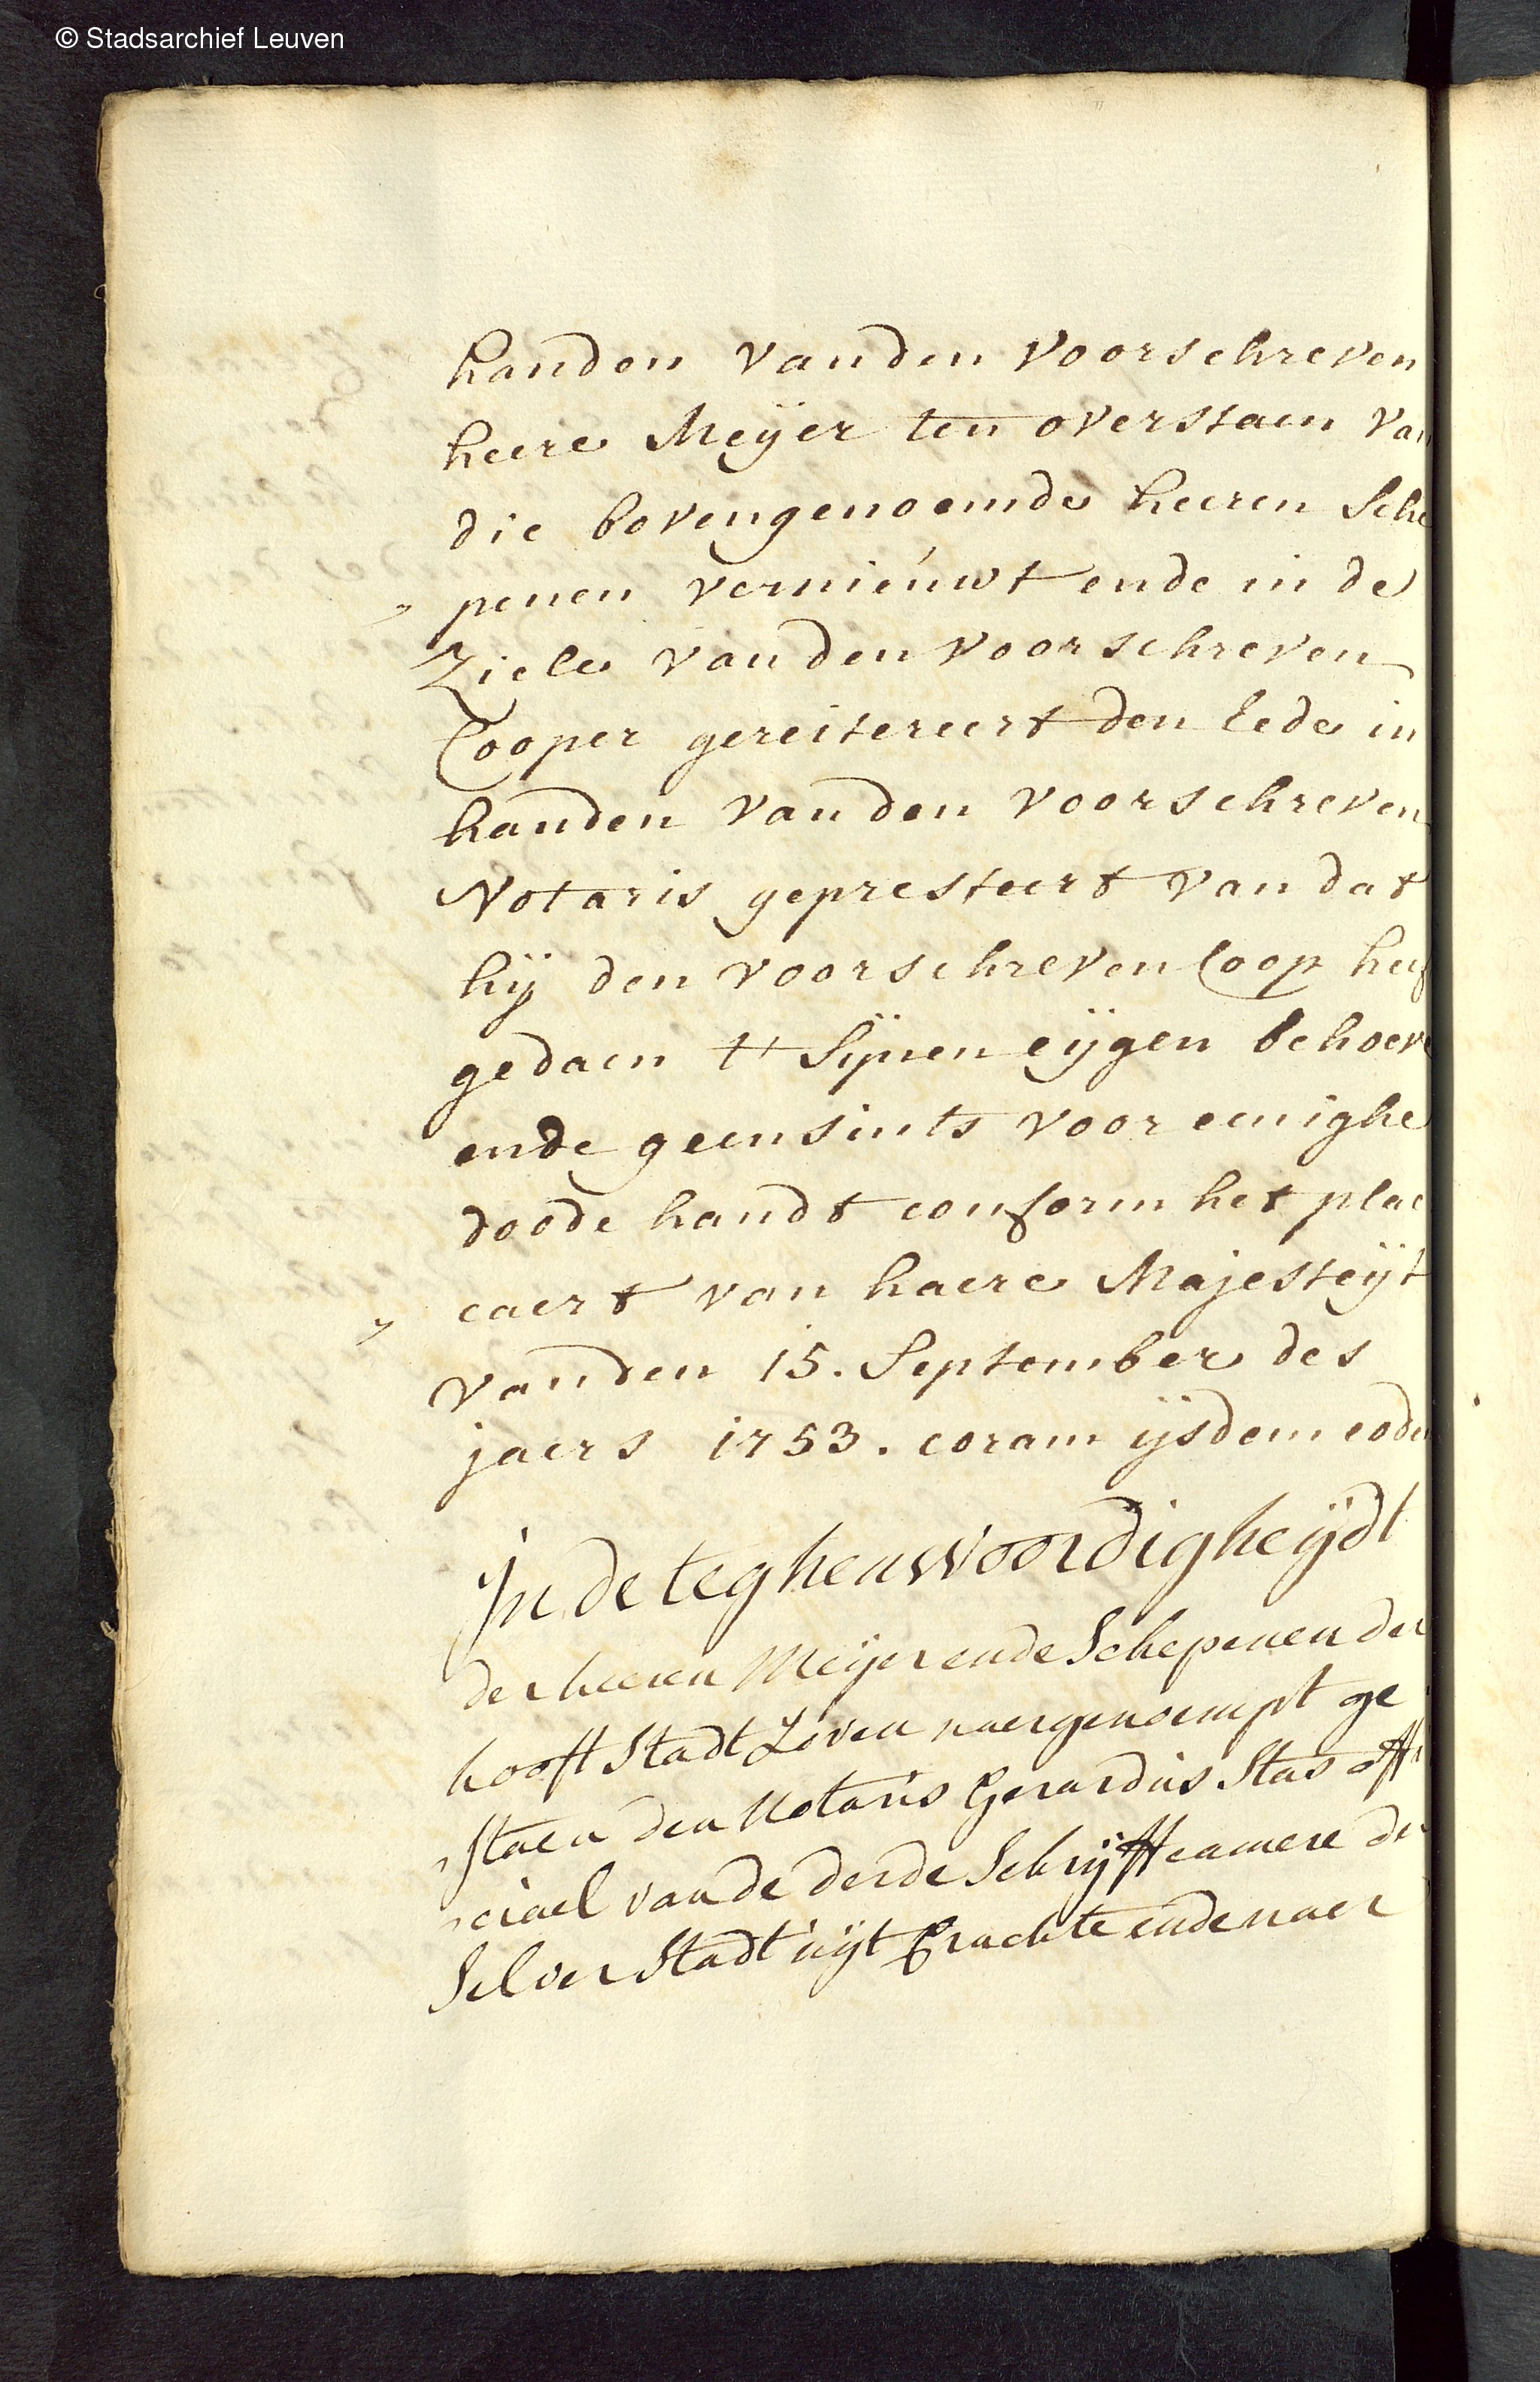 © Stadsarchief Leuven
handen vanden voorschreven
heere Meyer ten overstaen van
die bovengenoemde heeren Sche
penen vernieuwt ende in de
Ziele vanden voorschreven
Cooper gereitereert den eede in
handen vanden voorschreven
Notaris gepresteert van dat
hij den voorschreven Coop heef
gedaen t' sijnen eijgen behoeve
ende geensints voor eenighe
doode handt conform het plac
caert van haere Majesteijt
vanden 15. September des
jaers 1753. coram ijsdem eode
In de teghenwoordigheijdt
der heeren Meijer ende Schepenen der
hooft Stadt Loven naergenoempt ge
staen den Notaris Gerardus Stas offi
ciael van de derde Schrijffcamere der
Selver Stadt uijt Crachte ende naer